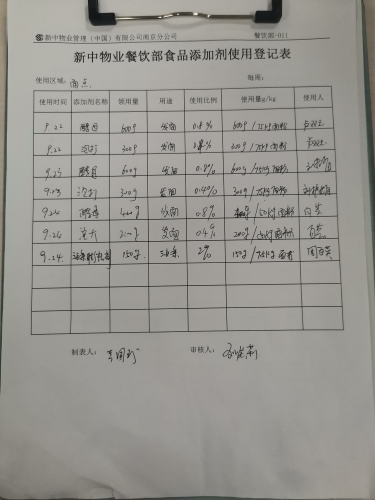 新中物业管理(中国)有限公司南京分公司 餐饮部-011
新中物业餐饮部食品添加剂使用登记表
使用区域: 面点 每周:
使用时间 添加剂名称 领用量 用途 使用比例 使用量g/kg 使用人
9.22 酵母 600g 发面 0.8% 600g/75kg面粉
9.22 泡打 300g 发面 0.4% 300g/75kg面粉
9.23 酵母 600g 发面 0.8% 600g/75kg面粉
9.23 泡打 300g 发面 0.4% 300g/75kg面粉
9.24 酵母 400g 发面 0.8% /50kg面粉
9.24 泡打 200g 发面 0.4% 200g/50kg面粉
9.24. 150g 油条 2% 150g/7.5kg面粉
制表人: 审核人: